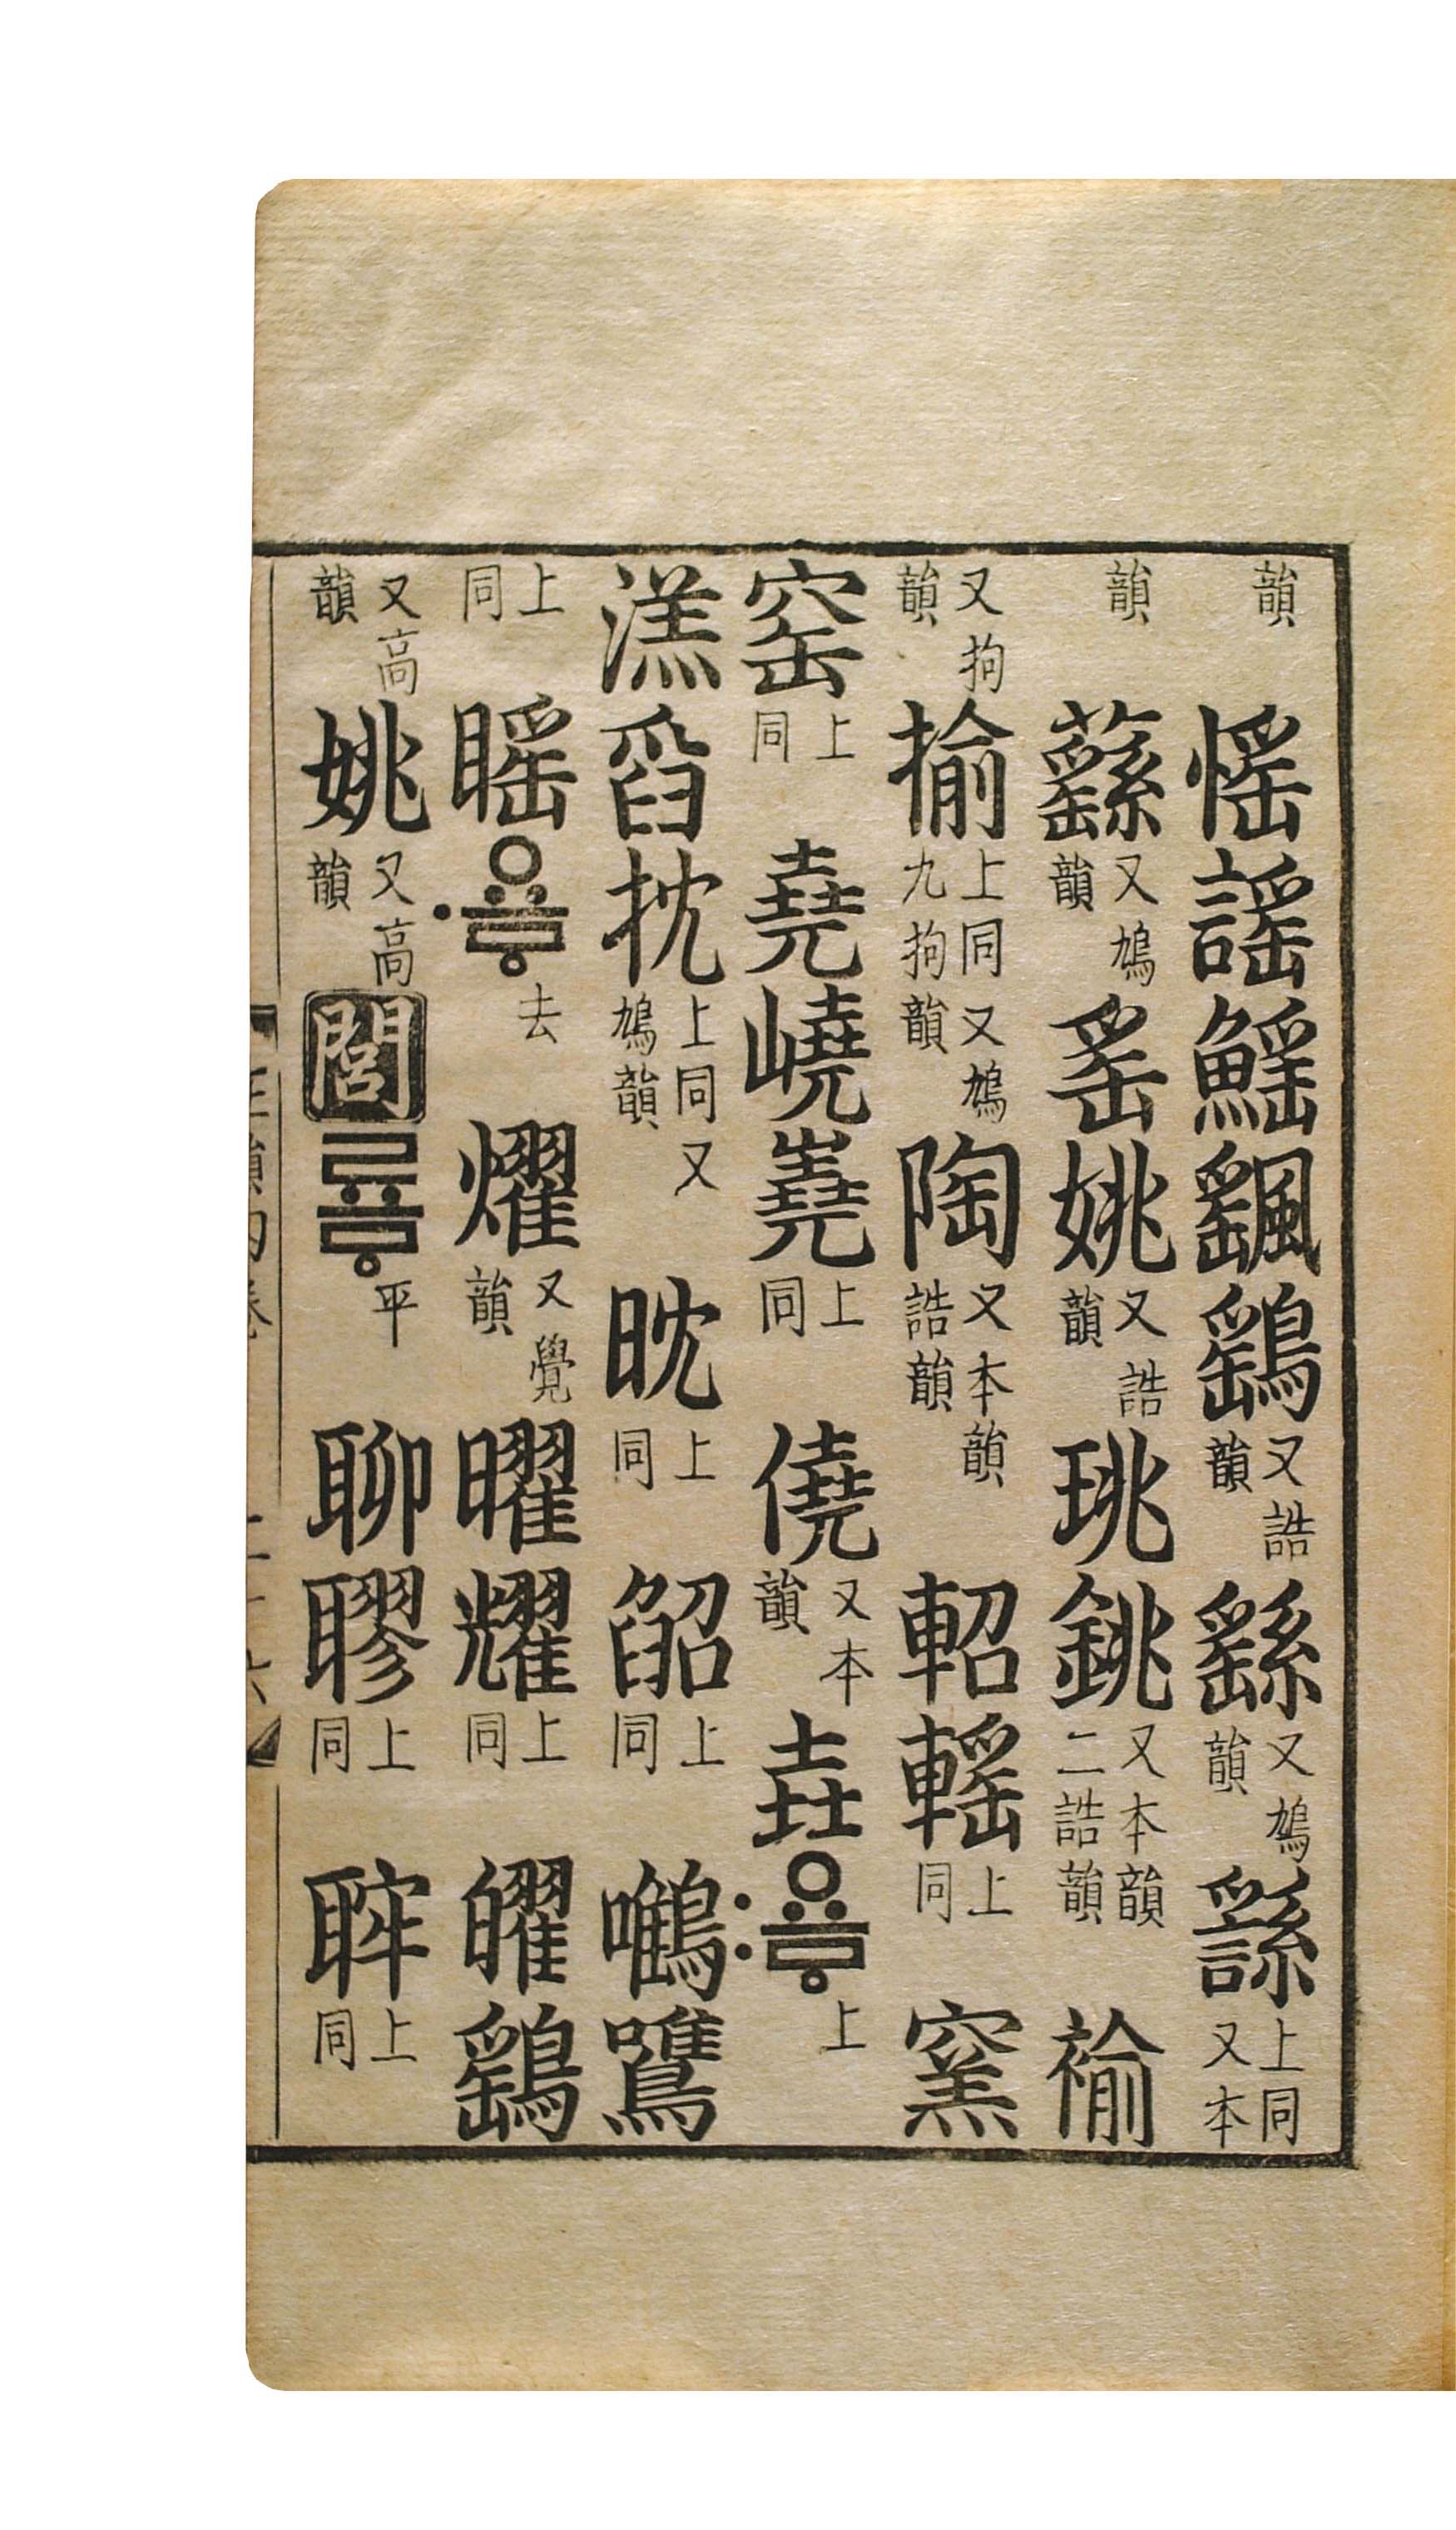 韻愮謡鰩颻鷂又誥韻繇又鳩韻䌛上同又本
韻蘨又鳩韻䍃姚又誥韻珧銚又本韻二誥韻褕
又拘韻揄上同又鳩九拘韻陶又本韻誥韻軺上同窯
窑上同堯嶢嶤上同僥又本韻垚〯요ᇢ上
溔舀抭上同又鳩韻上同上同鷕
上同〮요ᇢ去燿又覺韻曜耀上同鷂
又高韻姚又高韻閭료ᇢ平聊上同上同